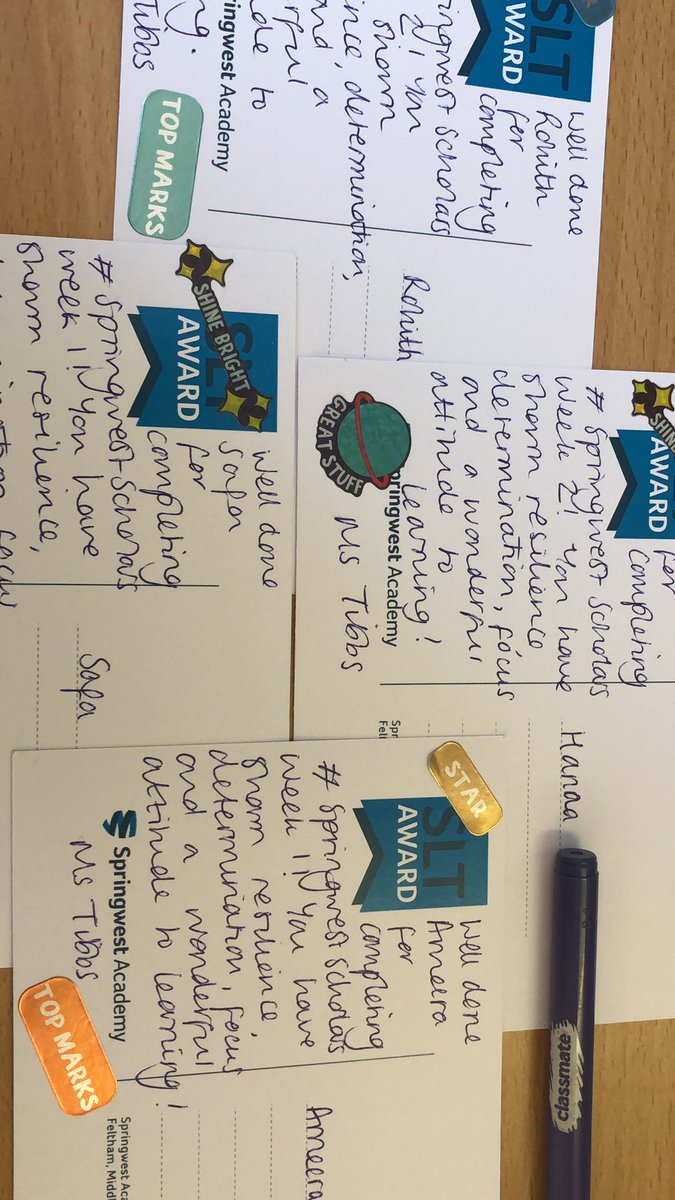 SLT
AWARD
Well done
Rohith
for
completing
scholars
2! You
shown
determination,
and a
to
Tibbs
Springwest Academy
TOP MARKS
Rohith
SHINE BRIGHT
SLT
AWARD
Well done
Safa
for
completing
# Springwest Scholars
week 1! You have
shown resilience,
Safa
SHINE
AWARD
for
completing
# Springwest Scholars
week 2! You have
shown resilience
determination, focus
and a wonderful
attitude to
learning!
Ms Tibbs
Springwest Academy
GREAT STUFF
Hanaa
STAR
SLT
AWARD
Well done
Ameera
for
completing
# Springwest Scholars
week 1! You have
shown resilience,
determination, focus
and a wonderful
attitude to learning!
Springwest Academy
Ms Tibbs
TOP MARKS
Ameera
Springwest
Feltham,
classmate